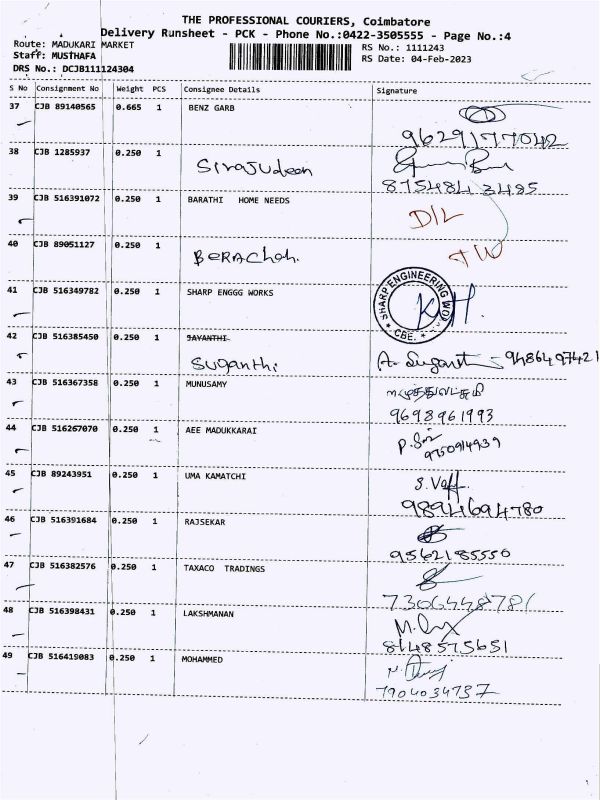 THE PROFESSIONAL COURIERS, Coimbatore
Delivery Runsheet - PCK - Phone No.:0422-3505555 - Page No.:4
Route: MADUKARI MARKET
RS No.: 1111243
Staff: MUSTHAFA
RS Date: 04-Feb-2023
DRS No.: DCJB111124304
S No Consignment No Weight PCS Consignee Details Signature
37 CJB 89140565 0.665 1 BENZ GARB
9629177042
38 CJB 1285937 0.250 1 Sirajudeen
8754842485
39 CJB 516391072 0.250 1 BARATHI HOME NEEDS D/L
40 CJB 89051127 0.250 1 BERAChah. TW
41 CJB 516349782 0.250 1 SHARP ENGGG WORKS
SHARP ENGINEERING WOR
* CBE. *
K.H.
42 CJB 516385450 0.250 1 JAYANTHI
Suganthi A. Suganthi - 9486497421
43 CJB 516367358 0.250 1 MUNUSAMY
9698961993
44 CJB 516267070 0.250 1 AEE MADUKKARAI
9750914939
45 CJB 89243951 0.250 1 UMA KAMATCHI
9894694780
46 CJB 516391684 0.250 1 RAJSEKAR
9562185550
47 CJB 516382576 0.250 1 TAXACO TRADINGS
7306448781
48 CJB 516398431 0.250 1 LAKSHMANAN
8148575651
49 CJB 516419083 0.250 1 MOHAMMED
7904034737